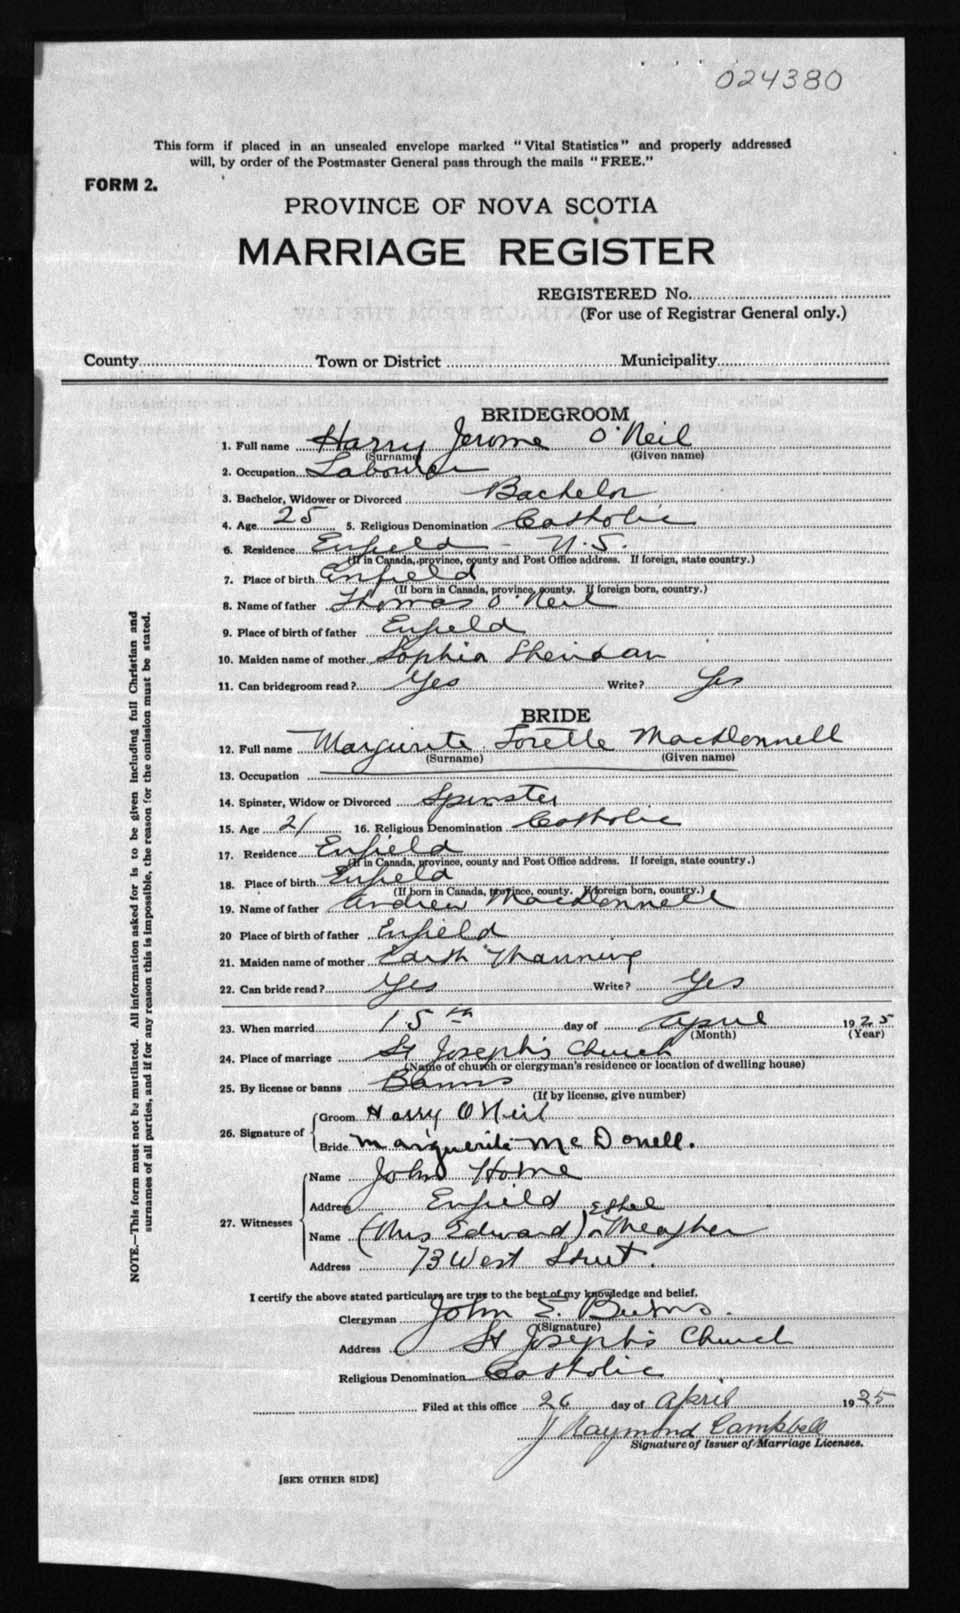 024380
This form if placed in an unsealed envelope marked "Vital Statistics" and properly addressed
will, by order of the Postmaster General pass through the mails "FREE."
FORM 2.
PROVINCE OF NOVA SCOTIA
MARRIAGE REGISTER
REGISTERED No.
(For use of Registrar General only.)
County Town or District Municipality
BRIDEGROOM
1. Full name Harry Jerome O'Neil
(Surname) (Given name)
2. Occupation Labourer
3. Bachelor, Widower or Divorced Bachelor
4. Age 25 5. Religious Denomination Catholic
6. Residence Enfield - N.S.
(If in Canada, province, county and Post Office address. If foreign, state country.)
7. Place of birth Enfield
(If born in Canada, province, county. If foreign born, country.)
8. Name of father Thomas O'Neil
9. Place of birth of father Enfield
10. Maiden name of mother Sophia Sheridan
11. Can bridegroom read? Yes Write? Yes
BRIDE
12. Full name Marguerite Lorette MacDonnell
(Surname) (Given name)
13. Occupation
14. Spinster, Widow or Divorced Spinster
15. Age 21 16. Religious Denomination Catholic
17. Residence Enfield
(If in Canada, province, county and Post Office address. If foreign, state country.)
18. Place of birth Enfield
(If born in Canada, province, county. If foreign born, country.)
19. Name of father Andrew MacDonnell
20 Place of birth of father Enfield
21. Maiden name of mother Edith Manning
22. Can bride read? Yes Write? Yes
23. When married 15th day of April 1925
(Month) (Year)
24. Place of marriage St Joseph's Church
(Name of church or clergyman's residence or location of dwelling house)
25. By license or banns Banns
(If by license, give number)
26. Signature of Groom Harry O'Neil
Bride Marguerite McDonell.
27. Witnesses Name John Horne
Address Enfield
Name (Mrs Edward) Ethel Meagher
Address 73 West Street.
I certify the above stated particulars are true to the best of my knowledge and belief.
Clergyman John E. Burns.
(Signature)
Address St Joseph's Church
Religious Denomination Catholic
Filed at this office 26 day of April 1925
J Raymond Campbell
Signature of Issuer of Marriage Licenses.
[SEE OTHER SIDE]
NOTE.—This form must not be mutilated. All information asked for is to be given including full Christian and
surnames of all parties, and if for any reason this is impossible, the reason for the omission must be stated.